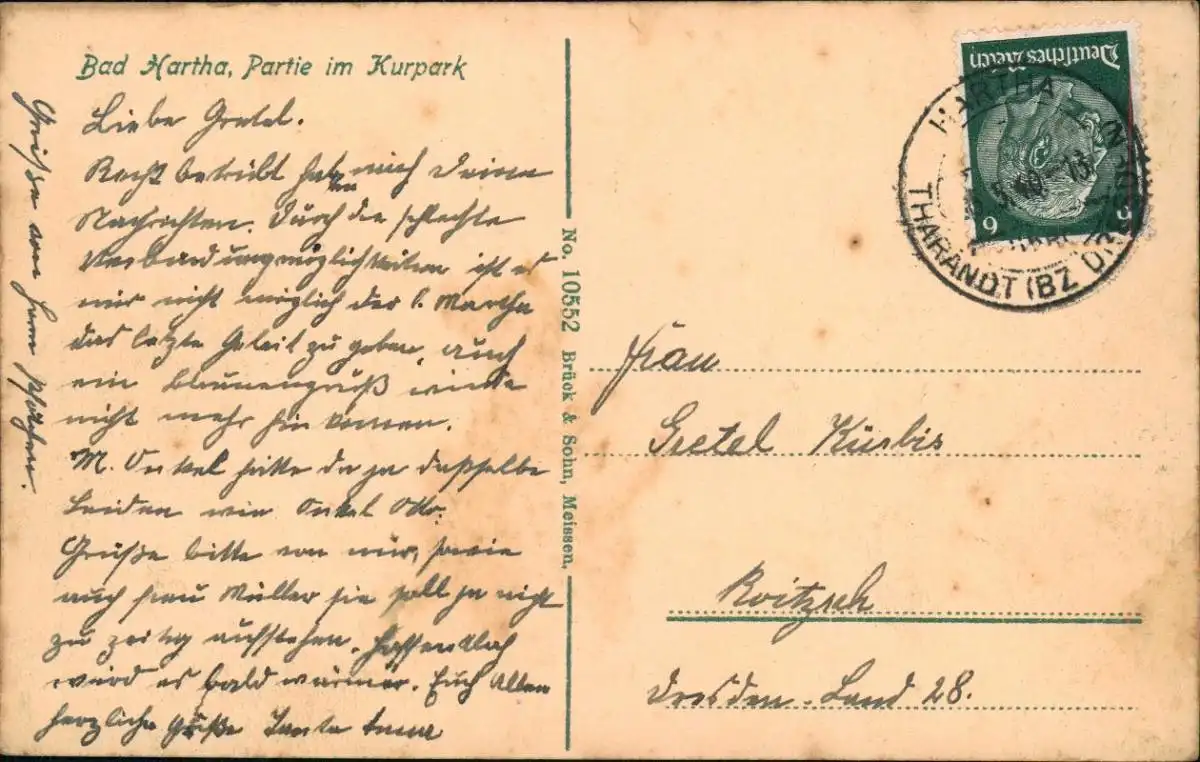 Bad Hartha, Partie im Kurpark
Liebe Gretel.
Recht betrübt haben mich Deine
Nachrichten. Durch die schlechte
Verbindungmöglichkeiten ist es
mir nicht möglich der l. Martha
das letzte Geleit zu geben, auch
ein Blumengruß würde
nicht mehr hin komen.
M. Onkel hatte da ja dasselbe
Leiden wie Onkel Otto.
Grüße bitte von mir, sowie
auch Frau Müller sie soll ja nicht
zu zeitig aufstehen. Hoffentlich
wird es bald wärmer. Euch Allen
herzliche Grüße Tante Anna
Grüße von Herrn
No. 10552 Brück & Sohn, Meissen.
Deutsches Reich
6 6
HARTHA
THARANDT (BZ DRESDEN)
Frau
Gretel Kürbis
Roitzsch
Dresden-Land 28.